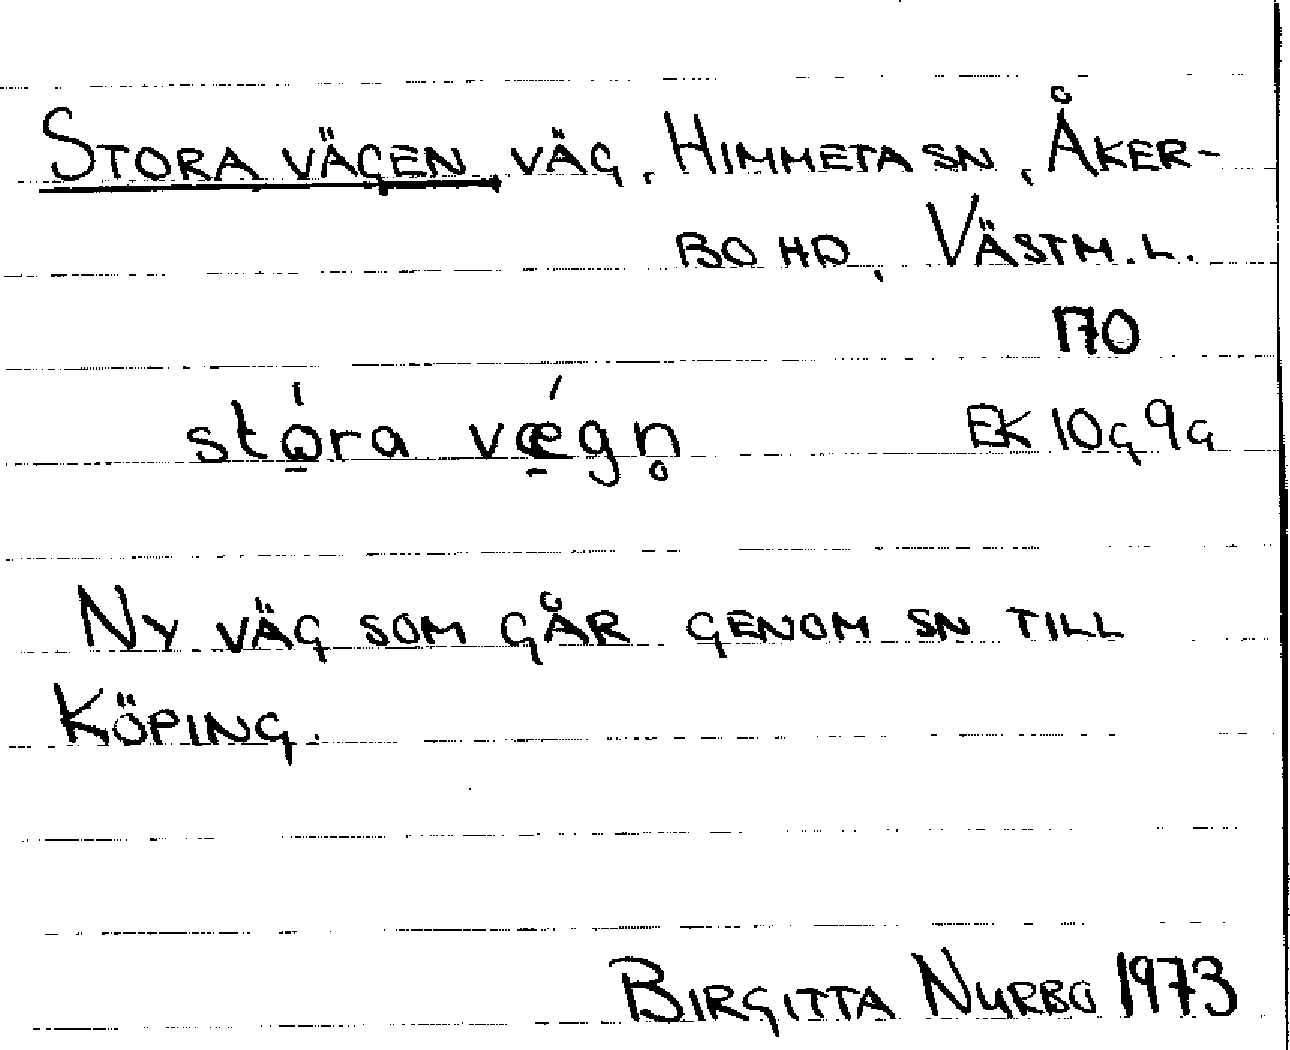 STORA VÄGEN, VÄG, HIMMETA SN, ÅKER-
BO HD, VÄSTM. L.
170
stó̱ra vǽ̱gn̥ EK 10G 9G
NY VÄG SOM GÅR GENOM SN TILL
KÖPING.
BIRGITTA NYRBG 1973